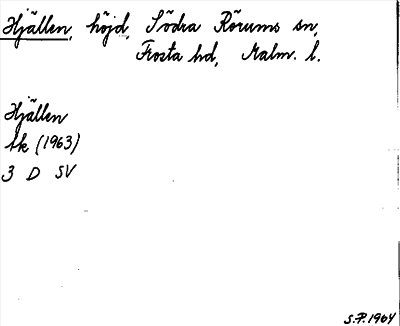 Hjällen, höjd, Södra Rörums sn,
Frosta hd, Malm. l.
Hjällen
tk (1963)
3 D SV
S.P. 1964